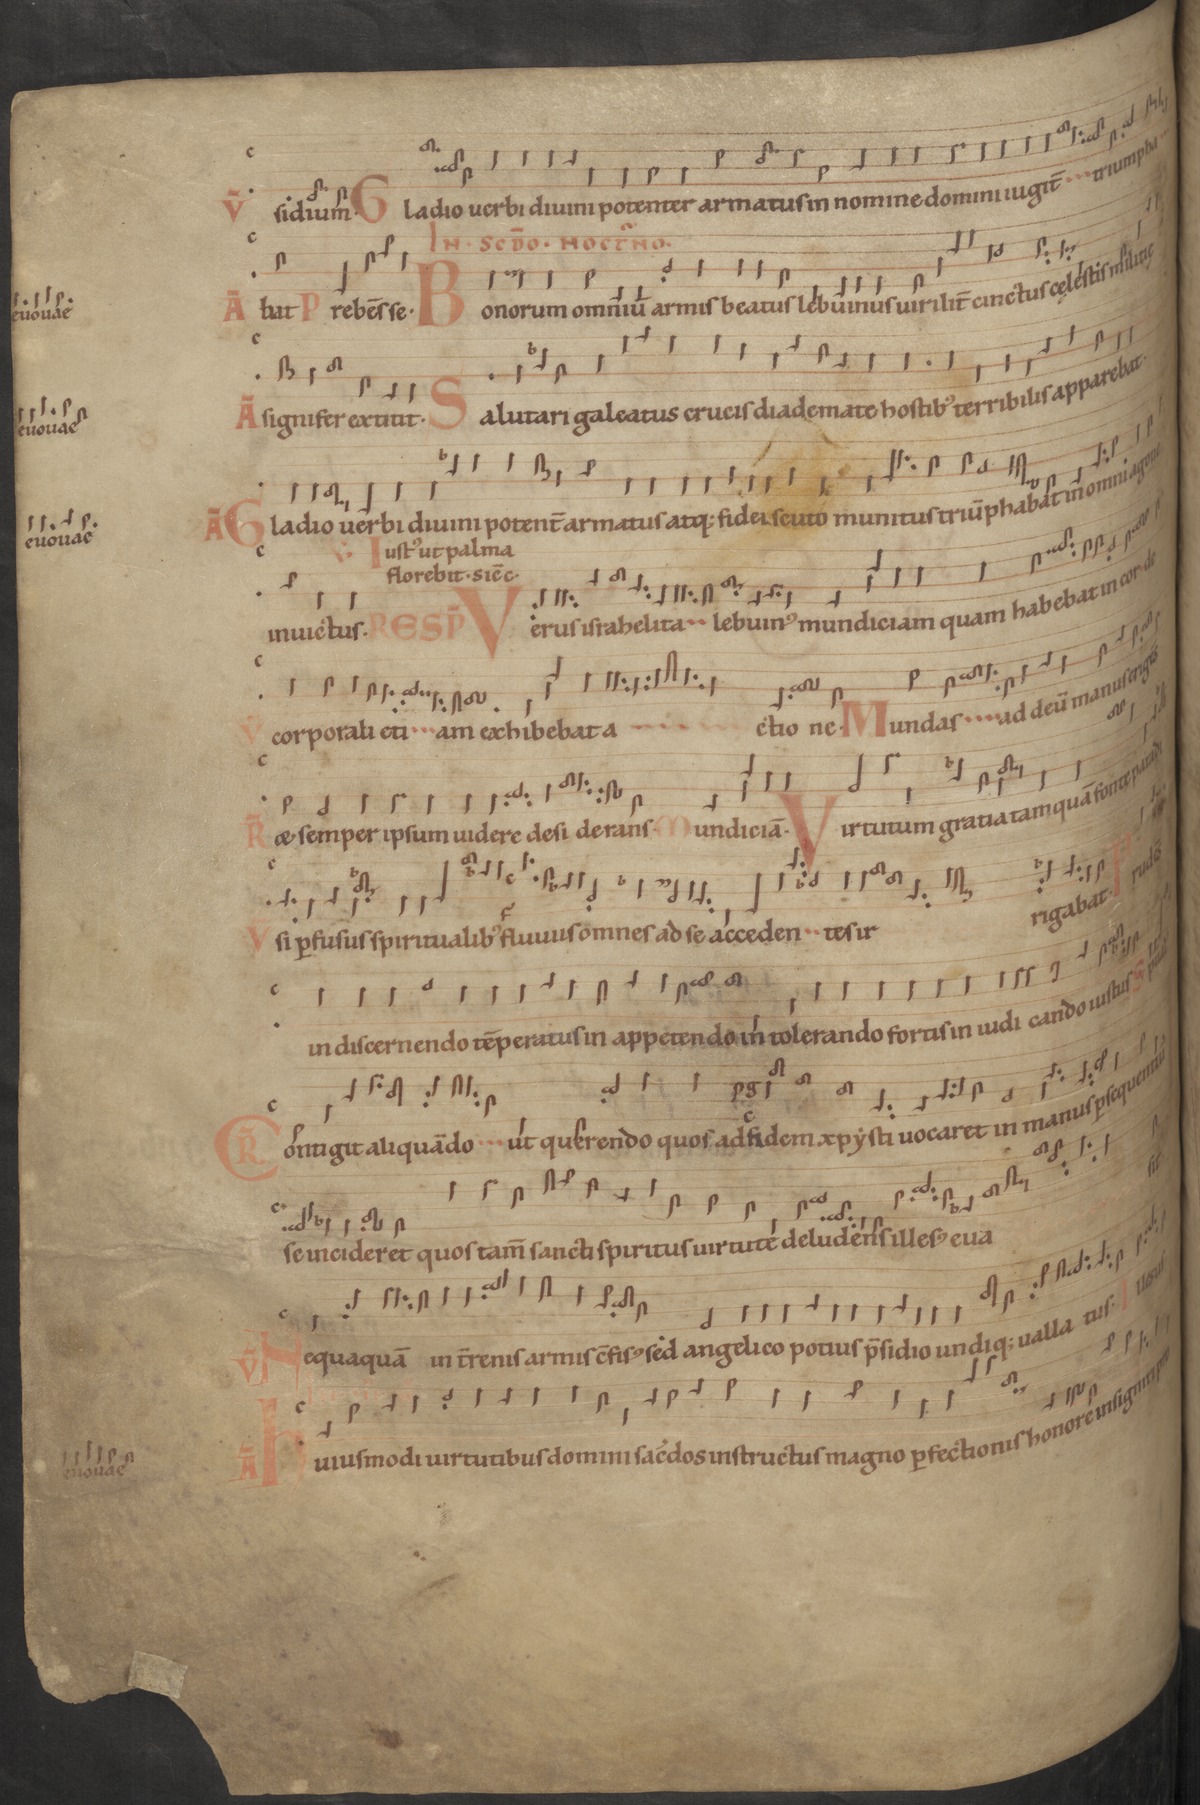 V̄ sidium. Gladio uerbi diuini potenter armatus in nomine domini iugit̄ triumpha
IN. SCD̄O. NOCT̄NO.
euouae Ā bat Prebēs se. Bonorum omniū armis beatus lebuuinus uirilit̄ cinctus cęlestis militię
euouae Ā signifer extitit. Salutari galeatus crucis diademate hostibꝰ terribilis apparebat.
euouae Ā Gladio uerbi diuini potent̄ armatus atq; fidei scuto munitus triūphabat in omni agone
V̄ Iustꝰ ut palma
florebit. sic̄
inuictus. RESP̄ Verus israhelita lebuinꝰ mundiciam quam habebat in cor de
V̄ corporali eti am exhibebat a ctio ne. Mundas ad deū manus erigēs
R̄ æ semper ipsum uidere desi derans. Mundiciā. Virtutum gratia tamquā fonte paradi
V si ꝑfusus spiritualibꝰ fluuiis omnes ad se acceden tes ir rigabat. P rudēs
in discernendo tēperatus in appetendo in tolerando fortis in iudi cando iustus
R̄ Contigit aliquādo ut querendo quos ad fidem xp̄ysti uocaret in manus ꝑsequentiū
se incideret quos tam̄ sancti spiritus uirtute deludens illesꝰ eua sit
V̄ Nequaquā in t̄renis armis c̄fisꝰ sed angelico potius p̄sidio undiq; ualla tus. Illesus
euouae Ā Huiusmodi uirtutibus domini sac̄dos instructus magno ꝑfectionis honore insigniri